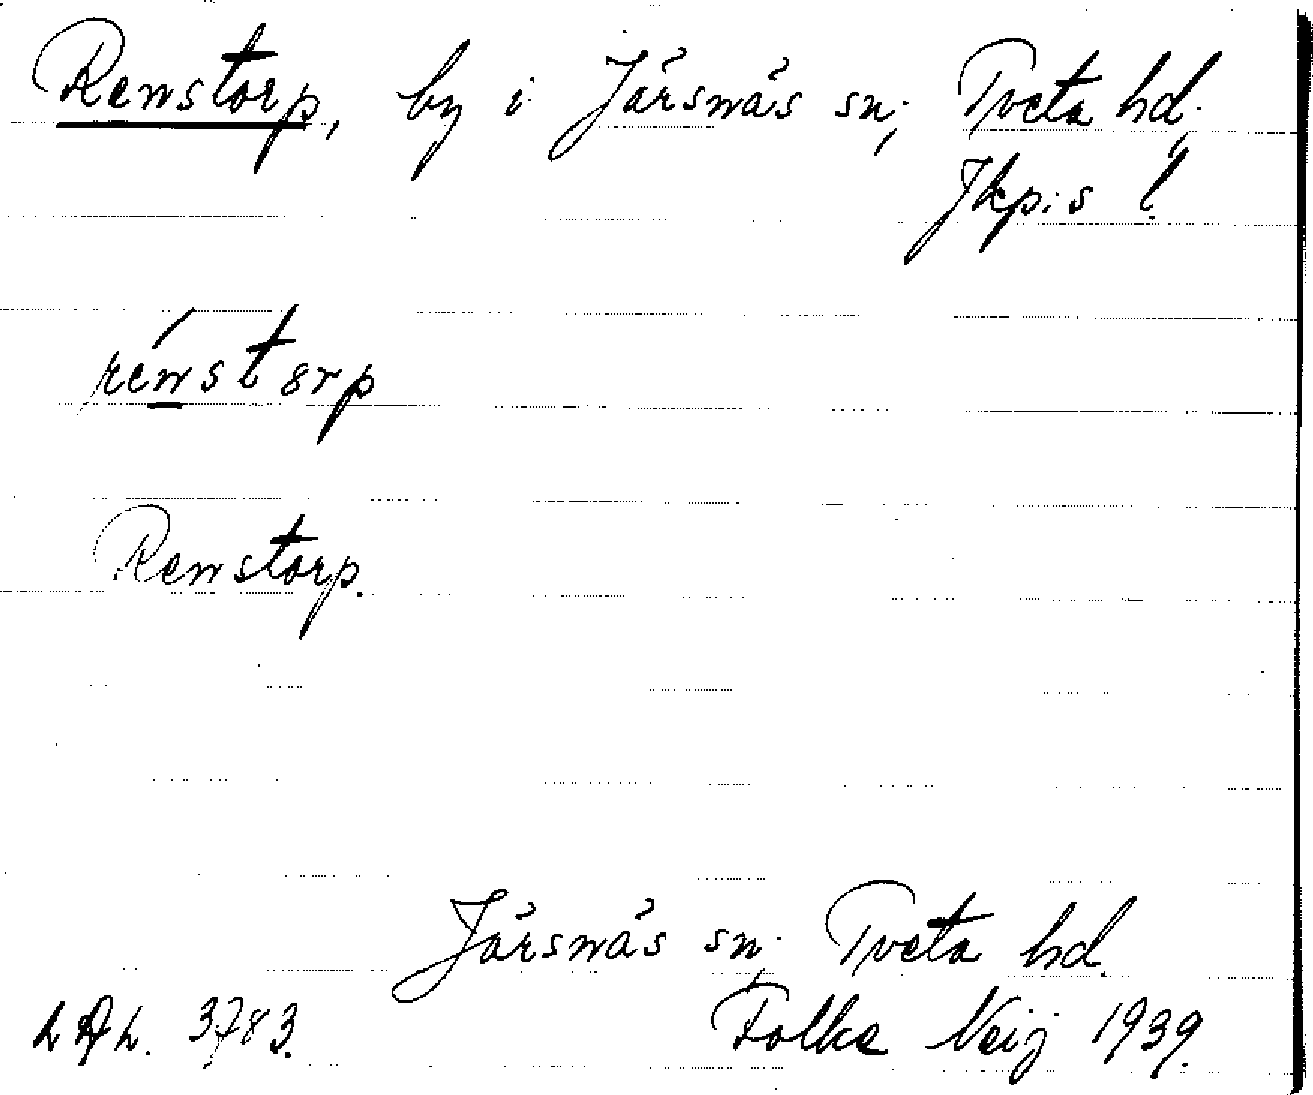 Renstorp, by i Järsnäs sn, Tveta hd,
Jkpis l.
renstorp
Renstorp.
Järsnäs sn, Tveta hd.
L A L. 3783.
Folke Neij 1939.